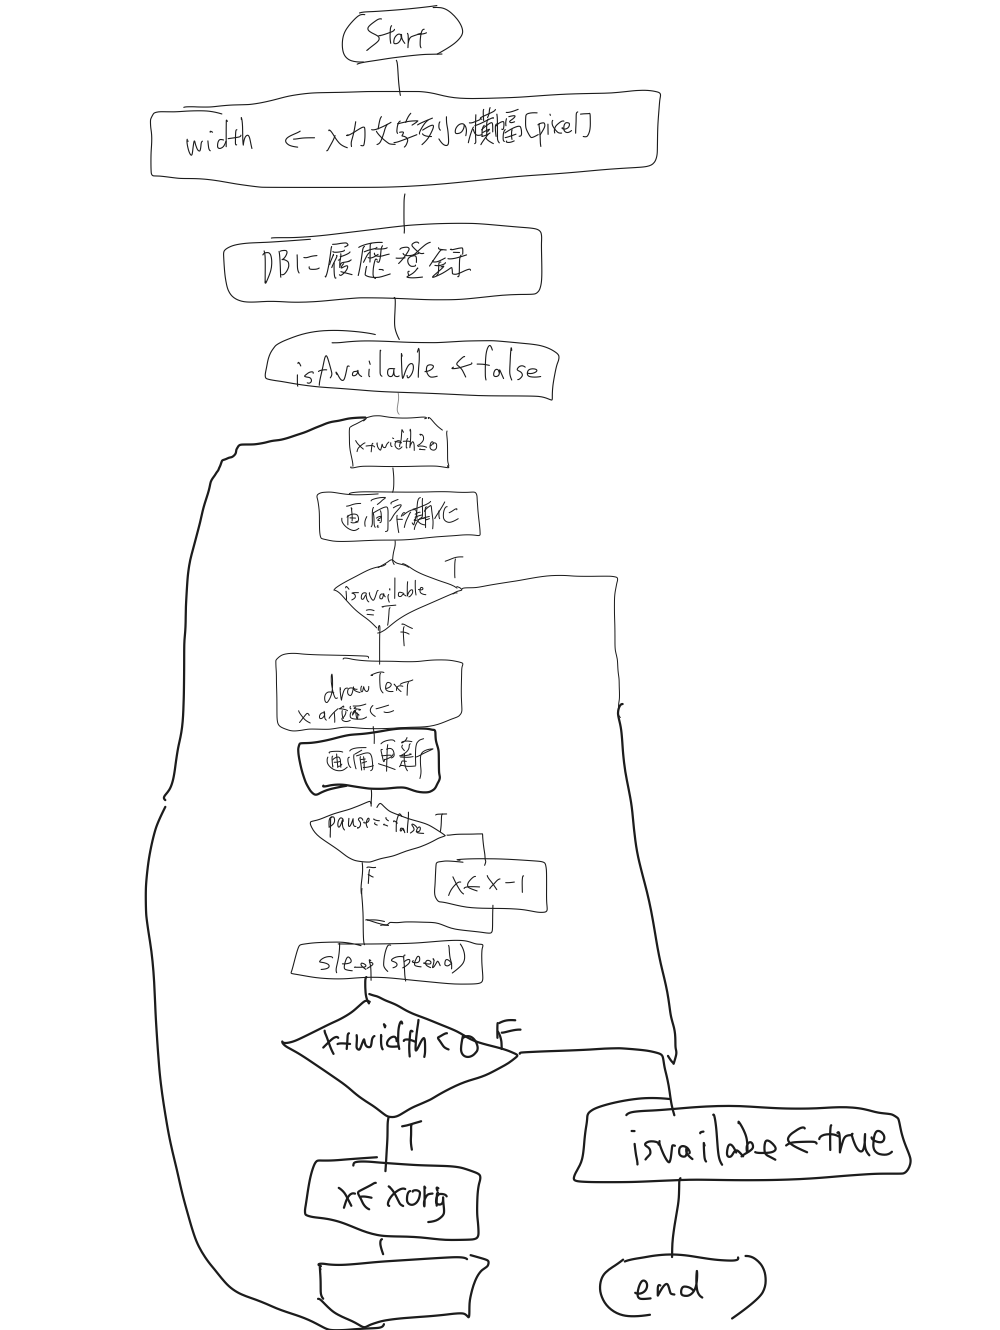 Start
width ← 入力文字列の横幅[pixel]
DBに履歴登録
isAvailable ← false
x+width≧0
画面初期化
T
isavailable
= T
F
drawText
xの位置に
画面更新
pause==false T
F
x← x-1
sleep(speend)
x+width<0 F
T
isvailabe←true
x← xorg
end